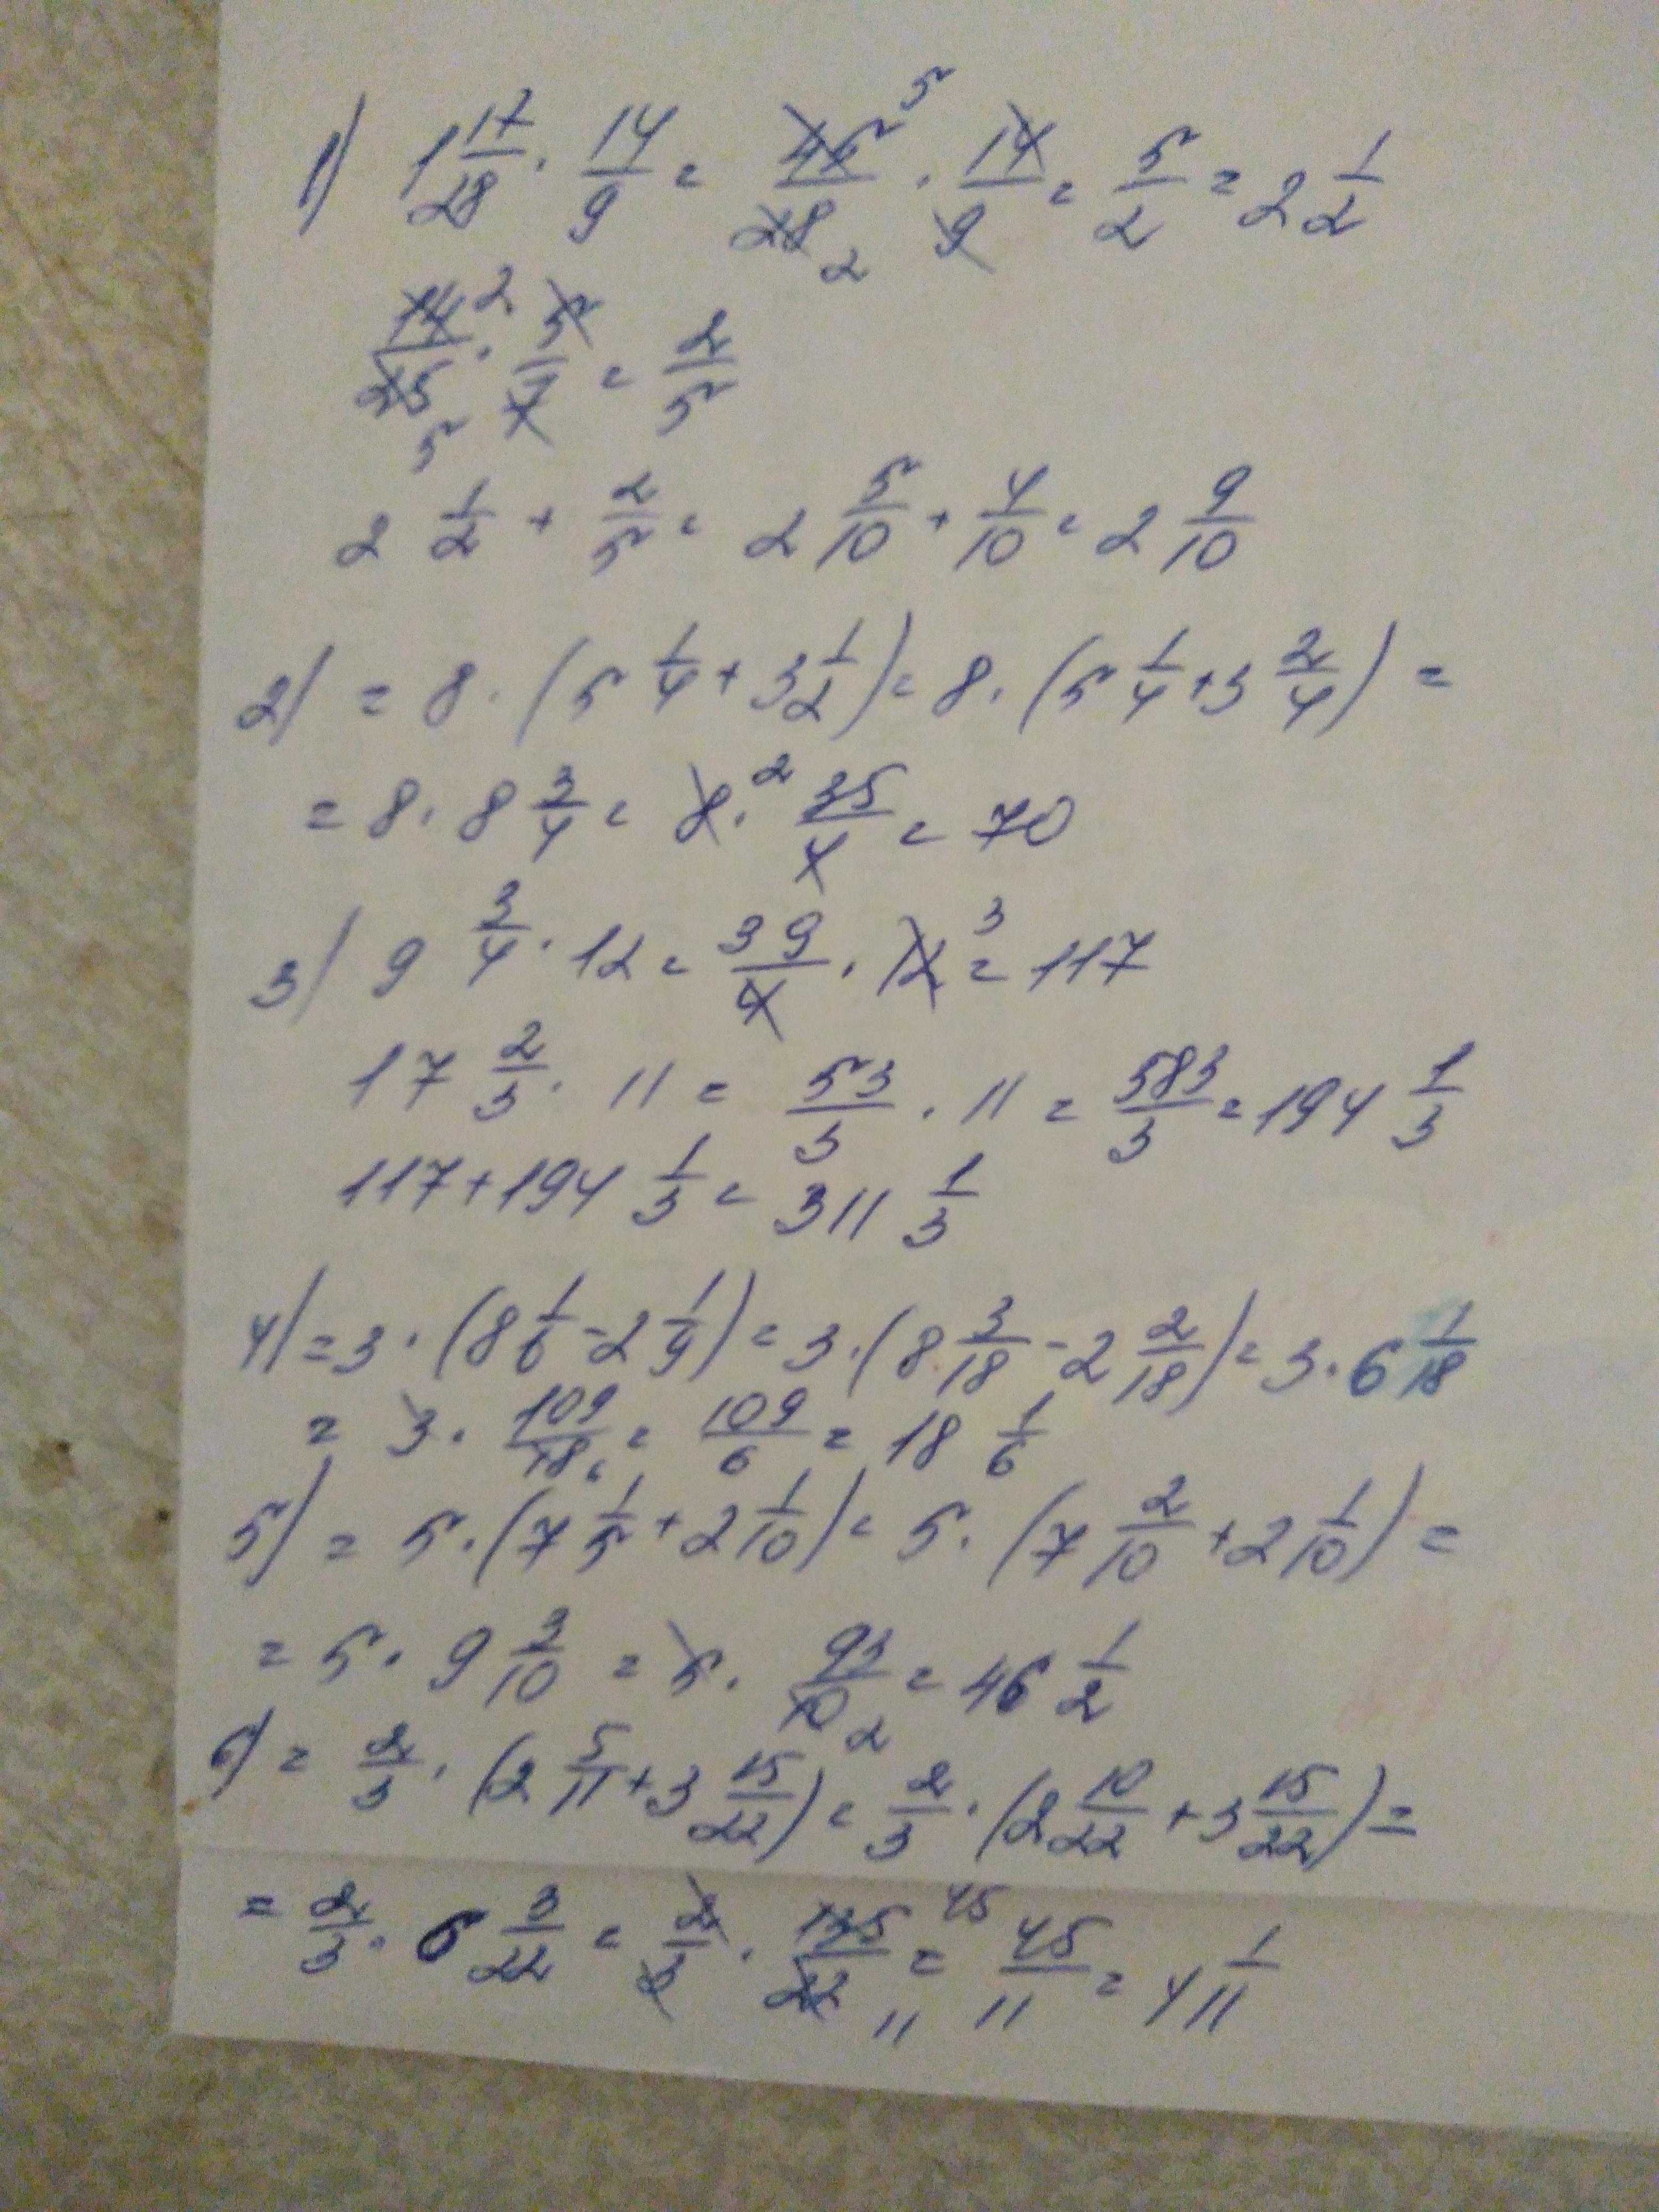 1) 1 17/28 · 14/9 = 45/28 · 14/9 = 5/2 = 2 1/2
14/25 · 5/7 = 2/5
2 1/2 + 2/5 = 2 5/10 + 4/10 = 2 9/10
2) = 8 · (5 1/4 + 3 1/2) = 8 · (5 1/4 + 3 2/4) =
= 8 · 8 3/4 = 8 · 35/4 = 70
3) 9 3/4 · 12 = 39/4 · 12 = 117
17 2/3 · 11 = 53/3 · 11 = 583/3 = 194 1/3
117 + 194 1/3 = 311 1/3
4) = 3 · (8 1/6 - 2 1/9) = 3 · (8 3/18 - 2 2/18) = 3 · 6 1/18
= 3 · 109/18 = 109/6 = 18 1/6
5) = 5 · (7 1/5 + 2 1/10) = 5 · (7 2/10 + 2 1/10) =
= 5 · 9 3/10 = 5 · 93/10 = 46 1/2
6) = 2/3 · (2 5/11 + 3 15/22) = 2/3 · (2 10/22 + 3 15/22) =
= 2/3 · 6 3/22 = 2/3 · 135/22 = 45/11 = 4 1/11